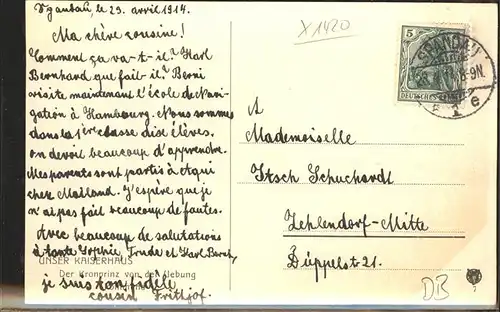 Spandau, le 29. avril 1914.
Ma chère cousine!
Comment ça va-t-il? Karl
Bernhard que fait-il? Berni
visite maintenant l'école de Navi-
gation à Hambourg. Nous sommes
dans la 1ère classe dix élèves.
on devoit beaucoup d'apprendre.
Mes parents sont partis à Aqui
chez Mailand. J'espère que je
n'ai pas fait beaucoup de fautes.
Avec beaucoup de salutations
à tante Sophie Trude et Karl Bernh.
je suis ton fidèle
cousin Frithjof.
UNSER KAISERHAUS
Der Kronprinz von der Uebung
X1420
5
DEUTSCHES
SPANDAU
8-9N.
1 e
A
Mademoiselle
Schuchardt
Zehlendorf-Mitte
Düppelstr 21.
DB